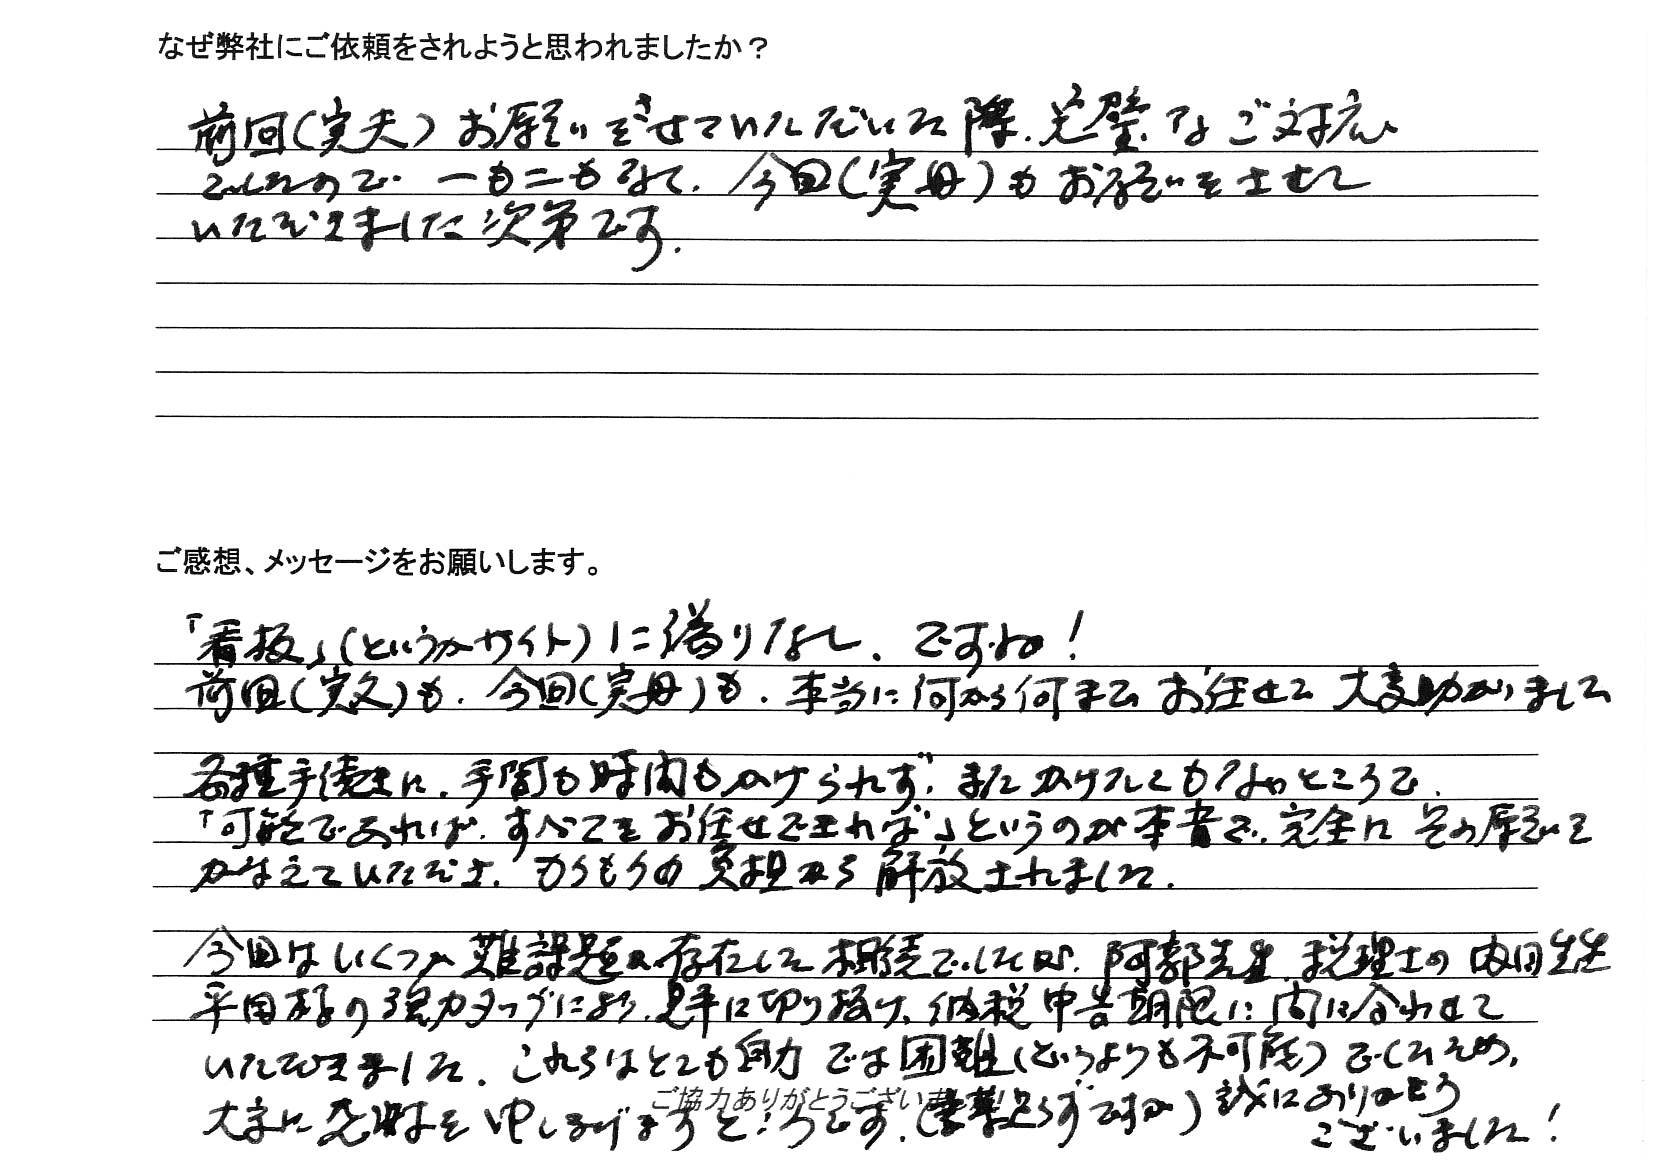 なぜ弊社にご依頼をされようと思われましたか？
前回(実夫)お願いをさせていただいた際、完璧なご対応
でしたので、一も二もなく、今回(実母)もお願いをさせて
いただきました次第です。
ご感想、メッセージをお願いします。
「看板」(というかサイト)に偽りなし、ですね！
前回(実父)も、今回(実母)も、本当に何から何までお任せで大変助かりまして
各種手続きに、手間も時間もかけられず、またかけたくもないところで、
「可能であれば、すべてをお任せできれば」というのが本音で、完全にその願いを
かなえていただき、もろもろの負担から解放されました。
今回はいくつか難課題が存在した相続でしたが、阿部先生、税理士の内田先生
平田様の強力タッグにより、見事に切り抜け、納税申告期限に間に合わせて
いただきました。これらはとても自力では困難(というよりも不可能)でしたため、
大変に感謝を申しあげますところです。(素案足らずですが)誠にありがとう
ございました！
ご協力ありがとうございました！